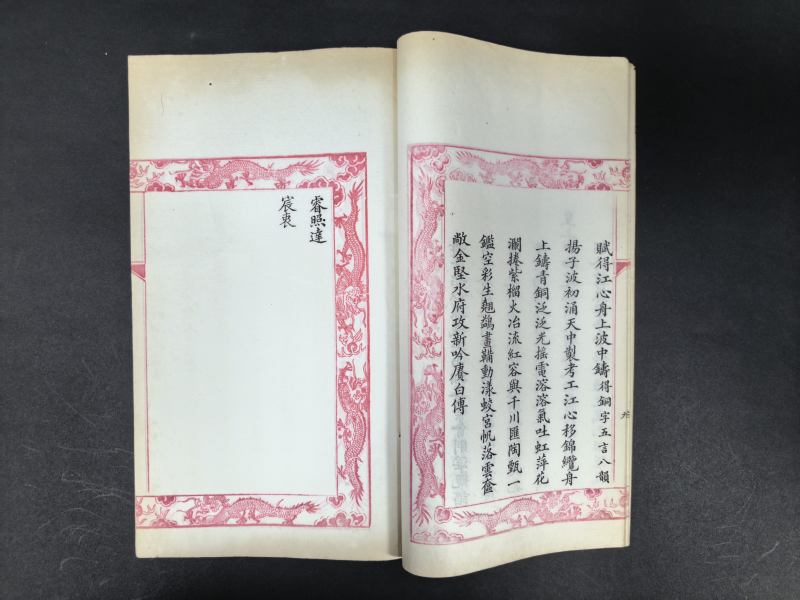 賦得江心舟上波中鑄得銅字五言八韻
揚子波初涌天中製考工江心移錦纜舟
上鑄青銅泛泛光摇電溶溶氣吐虹萍花
瀾捲紫榴火冶流紅容與千川匯陶甄一
鑑空彩生翹鷁畫鞴動漾蛟宮帆落雲奩
敞金堅水府攻新吟賡白傅
睿照達
宸衷